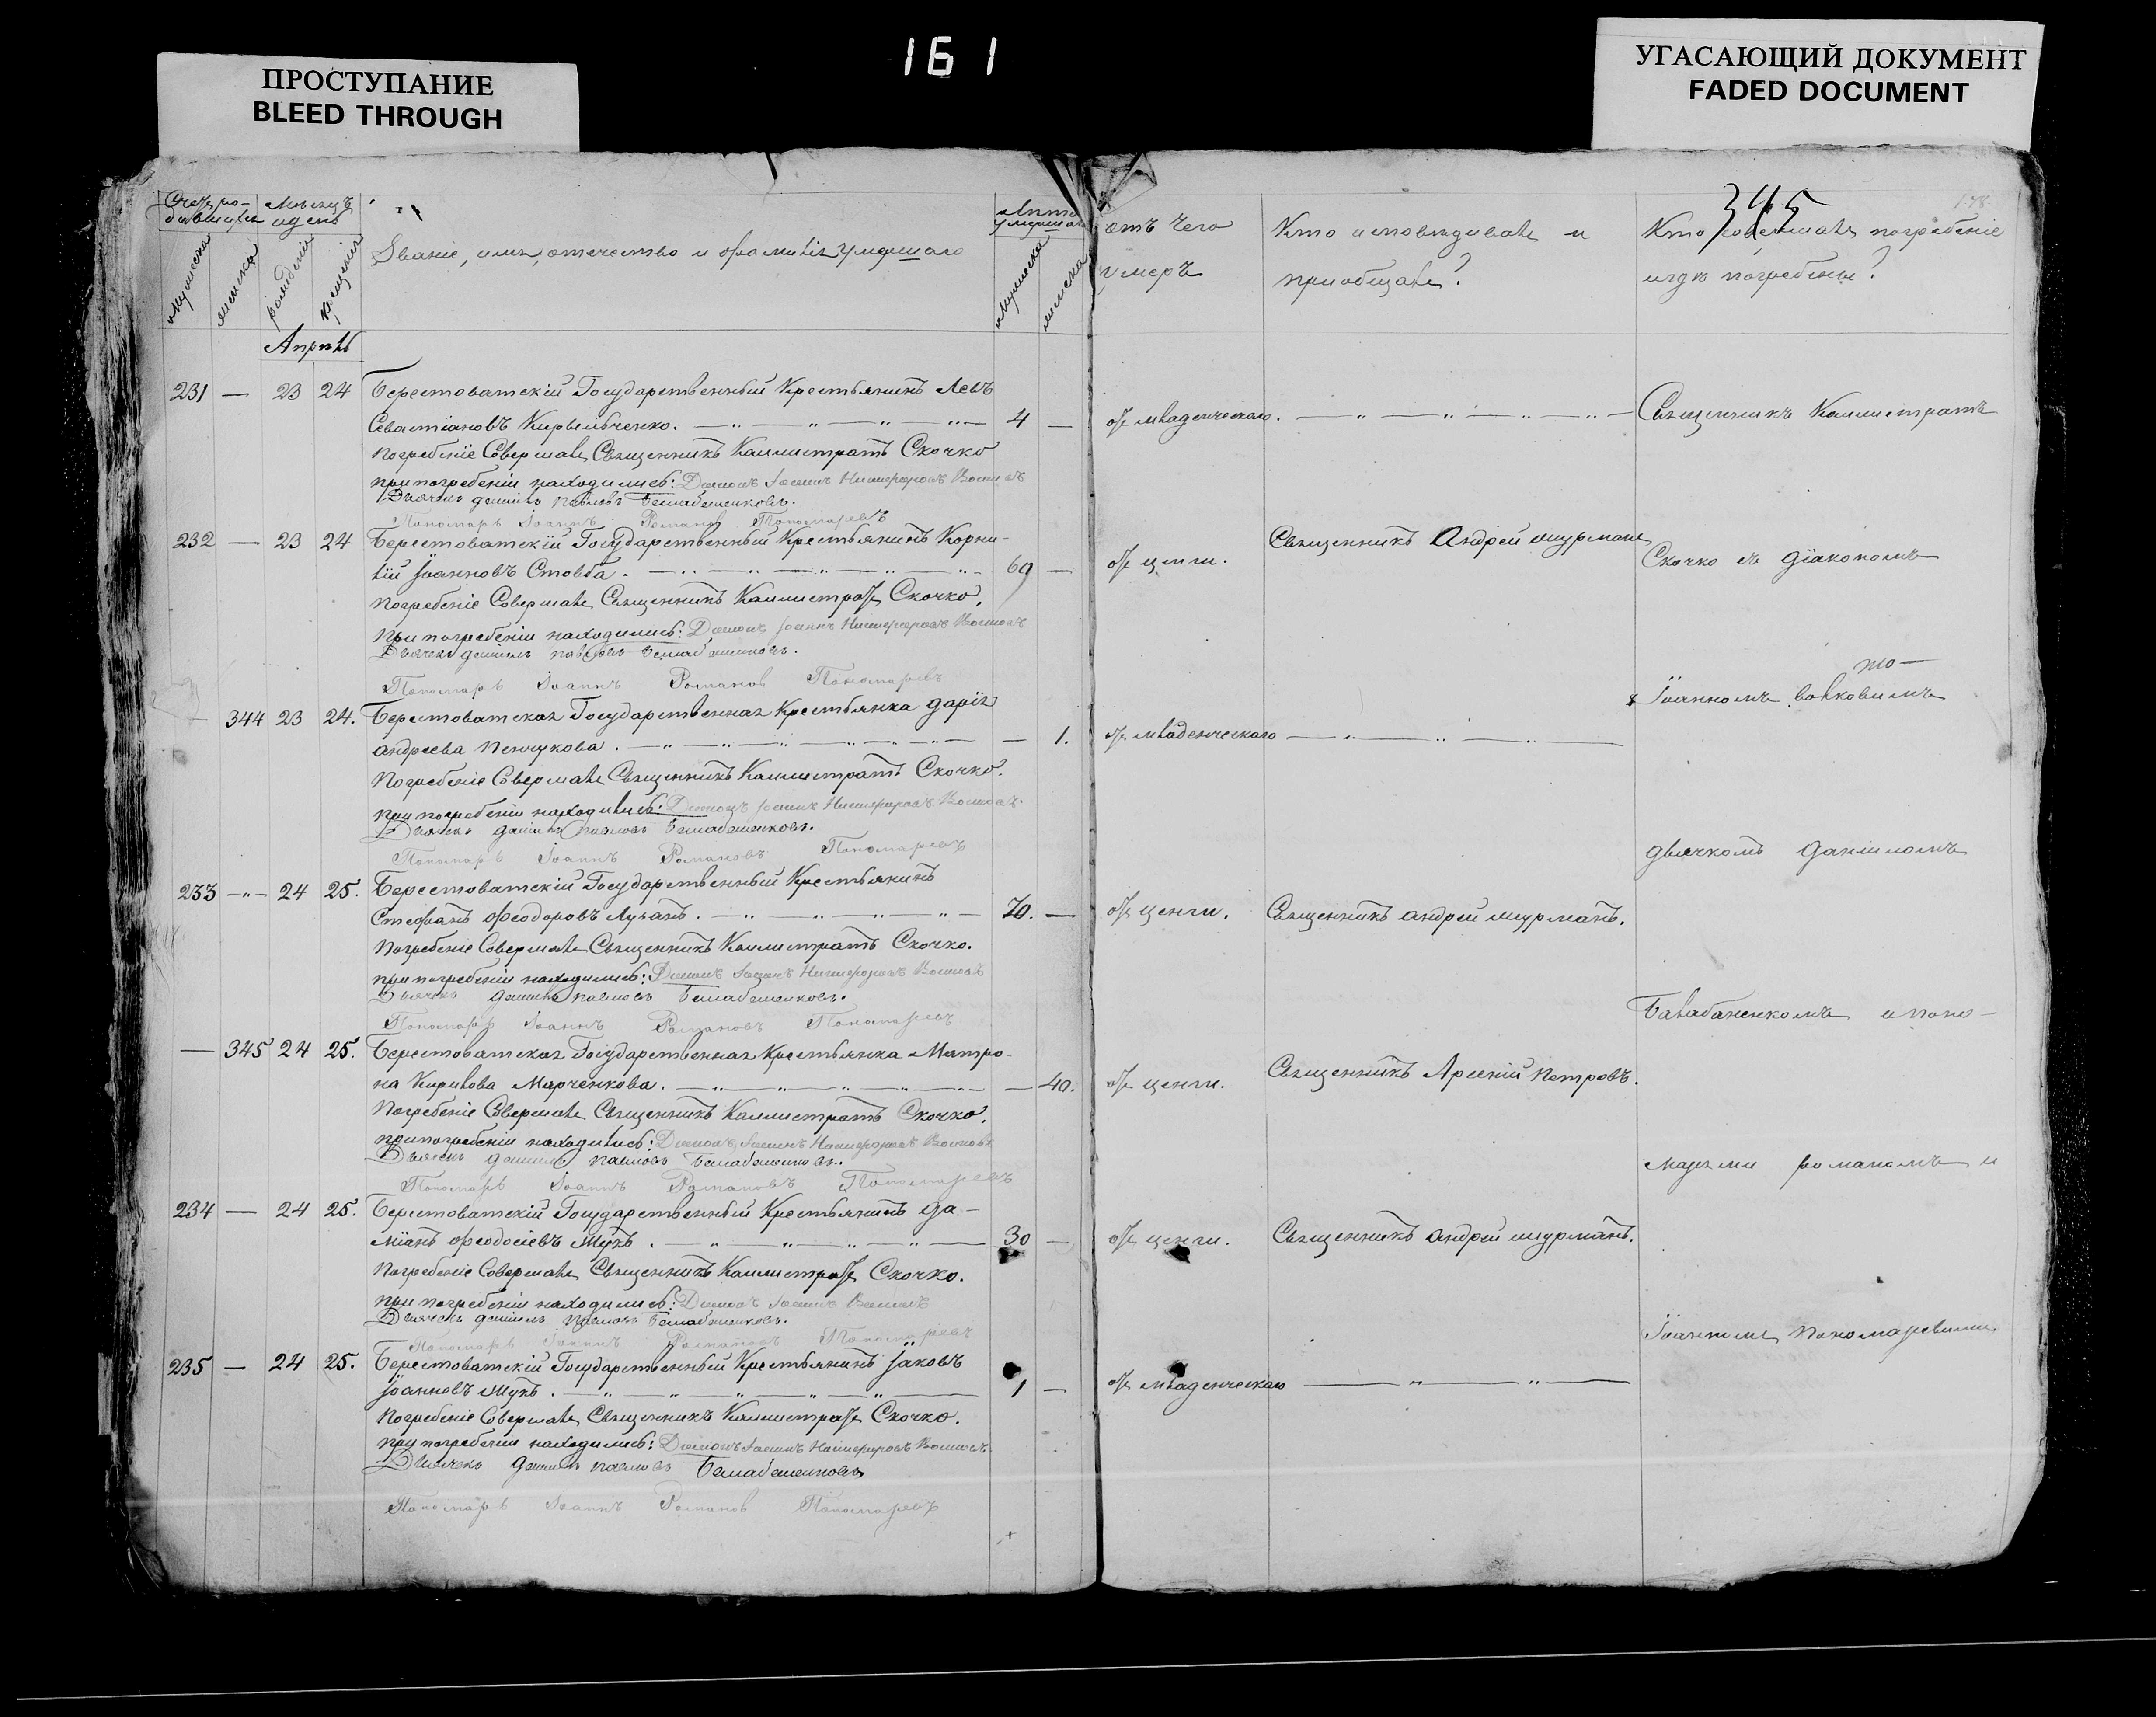 161
ПРОСТУПАНИЕ
BLEED THROUGH
УГАСАЮЩИЙ ДОКУМЕНТ
FADED DOCUMENT
345
178.
Мѣсяцъ
и день
Званіе, имя, отечество и фамилія умершаго
Лѣта
умершаго
отъ чего
умеръ
Кто исповѣдывалъ и
пріобщалъ?
Кто совершалъ погребеніе
и гдѣ погребены?
мужеска
женска
рожденія
крещенія
мужеска
женска
Апрѣль
231 — 23 24 Берестоватскій Государственный Крестьянинъ Левъ
Севастіановъ 4 — отъ младенческаго. Священникъ Каллистратъ
погребеніе Совершалъ Священникъ Каллистратъ Скочко
при погребеніи находились: Діаконъ Іоаннъ
Дьячекъ Даніилъ Павловъ Балабаненковъ.
Пономарь Іоаннъ Романов Пономаревъ
232 — 23 24 Берестоватскій Государственный Крестьянинъ Корни-
лій Іоанновъ Стовба. 69 — отъ цынги. Священникъ Андрей Шурманъ
Скочко съ діакономъ
погребеніе Совершалъ Священникъ Каллистратъ Скочко,
при погребеніи находились: Діаконъ Іоаннъ
Дьячекъ Даніилъ Павловъ Балабаненковъ.
Пономарь Іоаннъ Романов Пономаревъ
Іоанномъ Волковымъ
— 344 23 24. Берестоватская Государственная Крестьянка Дарія
Андреева Пенчукова. — 1. отъ младенческаго
Погребеніе Совершалъ Священникъ Каллистратъ Скочко.
при погребеніи находились: Діаконъ Іоаннъ
Дьячекъ Даніилъ Павловъ Балабаненковъ.
Пономарь Іоаннъ Романовъ Пономаревъ
дьячкомъ Даніиломъ
233 — 24 25. Берестоватскій Государственный Крестьянинъ
Стефанъ Феодоровъ Лучанъ. 70. — отъ цынги. Священникъ Андрей Шурманъ.
Погребеніе Совершалъ Священникъ Каллистратъ Скочко.
при погребеніи находились: Діаконъ Іоаннъ
Дьячекъ Даніилъ Павловъ Балабаненковъ.
Пономарь Іоаннъ Романовъ Пономаревъ
Балабаненкомъ и поно-
— 345 24 25. Берестоватская Государственная Крестьянка Матро-
на Кирилова Марченкова. — 40. отъ цынги. Священникъ Арсеній Петровъ.
Погребеніе Совершалъ Священникъ Каллистратъ Скочко.
при погребеніи находились: Діаконъ Іоаннъ
Дьячекъ Даніилъ Павловъ Балабаненковъ.
Пономарь Іоаннъ Романовъ Пономаревъ
марями романомъ и
234 — 24 25. Берестоватскій Государственный Крестьянинъ Да-
міанъ Феодосіевъ Шутъ. 30 — отъ цынги. Священникъ Андрей Шурманъ.
Погребеніе Совершалъ Священникъ Каллистратъ Скочко.
при погребеніи находились: Діаконъ Іоаннъ
Дьячекъ Даніилъ Павловъ Балабаненковъ.
Пономарь Іоаннъ Романовъ Пономаревъ
Іоанномъ Пономаревыми
235 — 24 25. Берестоватскій Государственный Крестьянинъ Іаковъ
Іоанновъ Шутъ. 1 — отъ младенческаго
Погребеніе Совершалъ Священникъ Каллистратъ Скочко.
при погребеніи находились: Діаконъ Іоаннъ
Дьячекъ Даніилъ Павловъ Балабаненковъ
Пономарь Іоаннъ Романов Пономаревъ